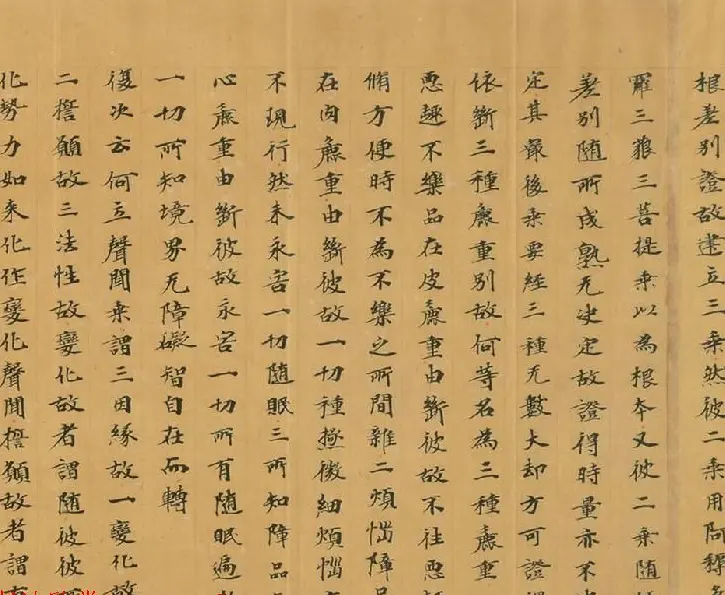 根差別證故建立三乘然彼二乘用阿耨
羅三藐三菩提乘以為根本又彼二乘隨
差別隨所成熟无決定故證得時量亦不
定其最後乘要經三種无數大劫方可證
依斷三種麁重別故何等名為三種麁重
惡趣不樂品在皮麁重由斷彼故不往惡
脩方便時不為不樂之所間雜二煩惱障品
在肉麁重由斷彼故一切種極微細煩惱
不現行然未永害一切隨眠三所知障品
心麁重由斷彼故永害一切所有隨眠遍
一切所知境界无障礙智自在而轉
復次云何立聲聞乘謂三因緣故一變化故
二誓願故三法性故變化故者謂隨彼彼
化勢力如來化作變化聲聞誓願故者謂